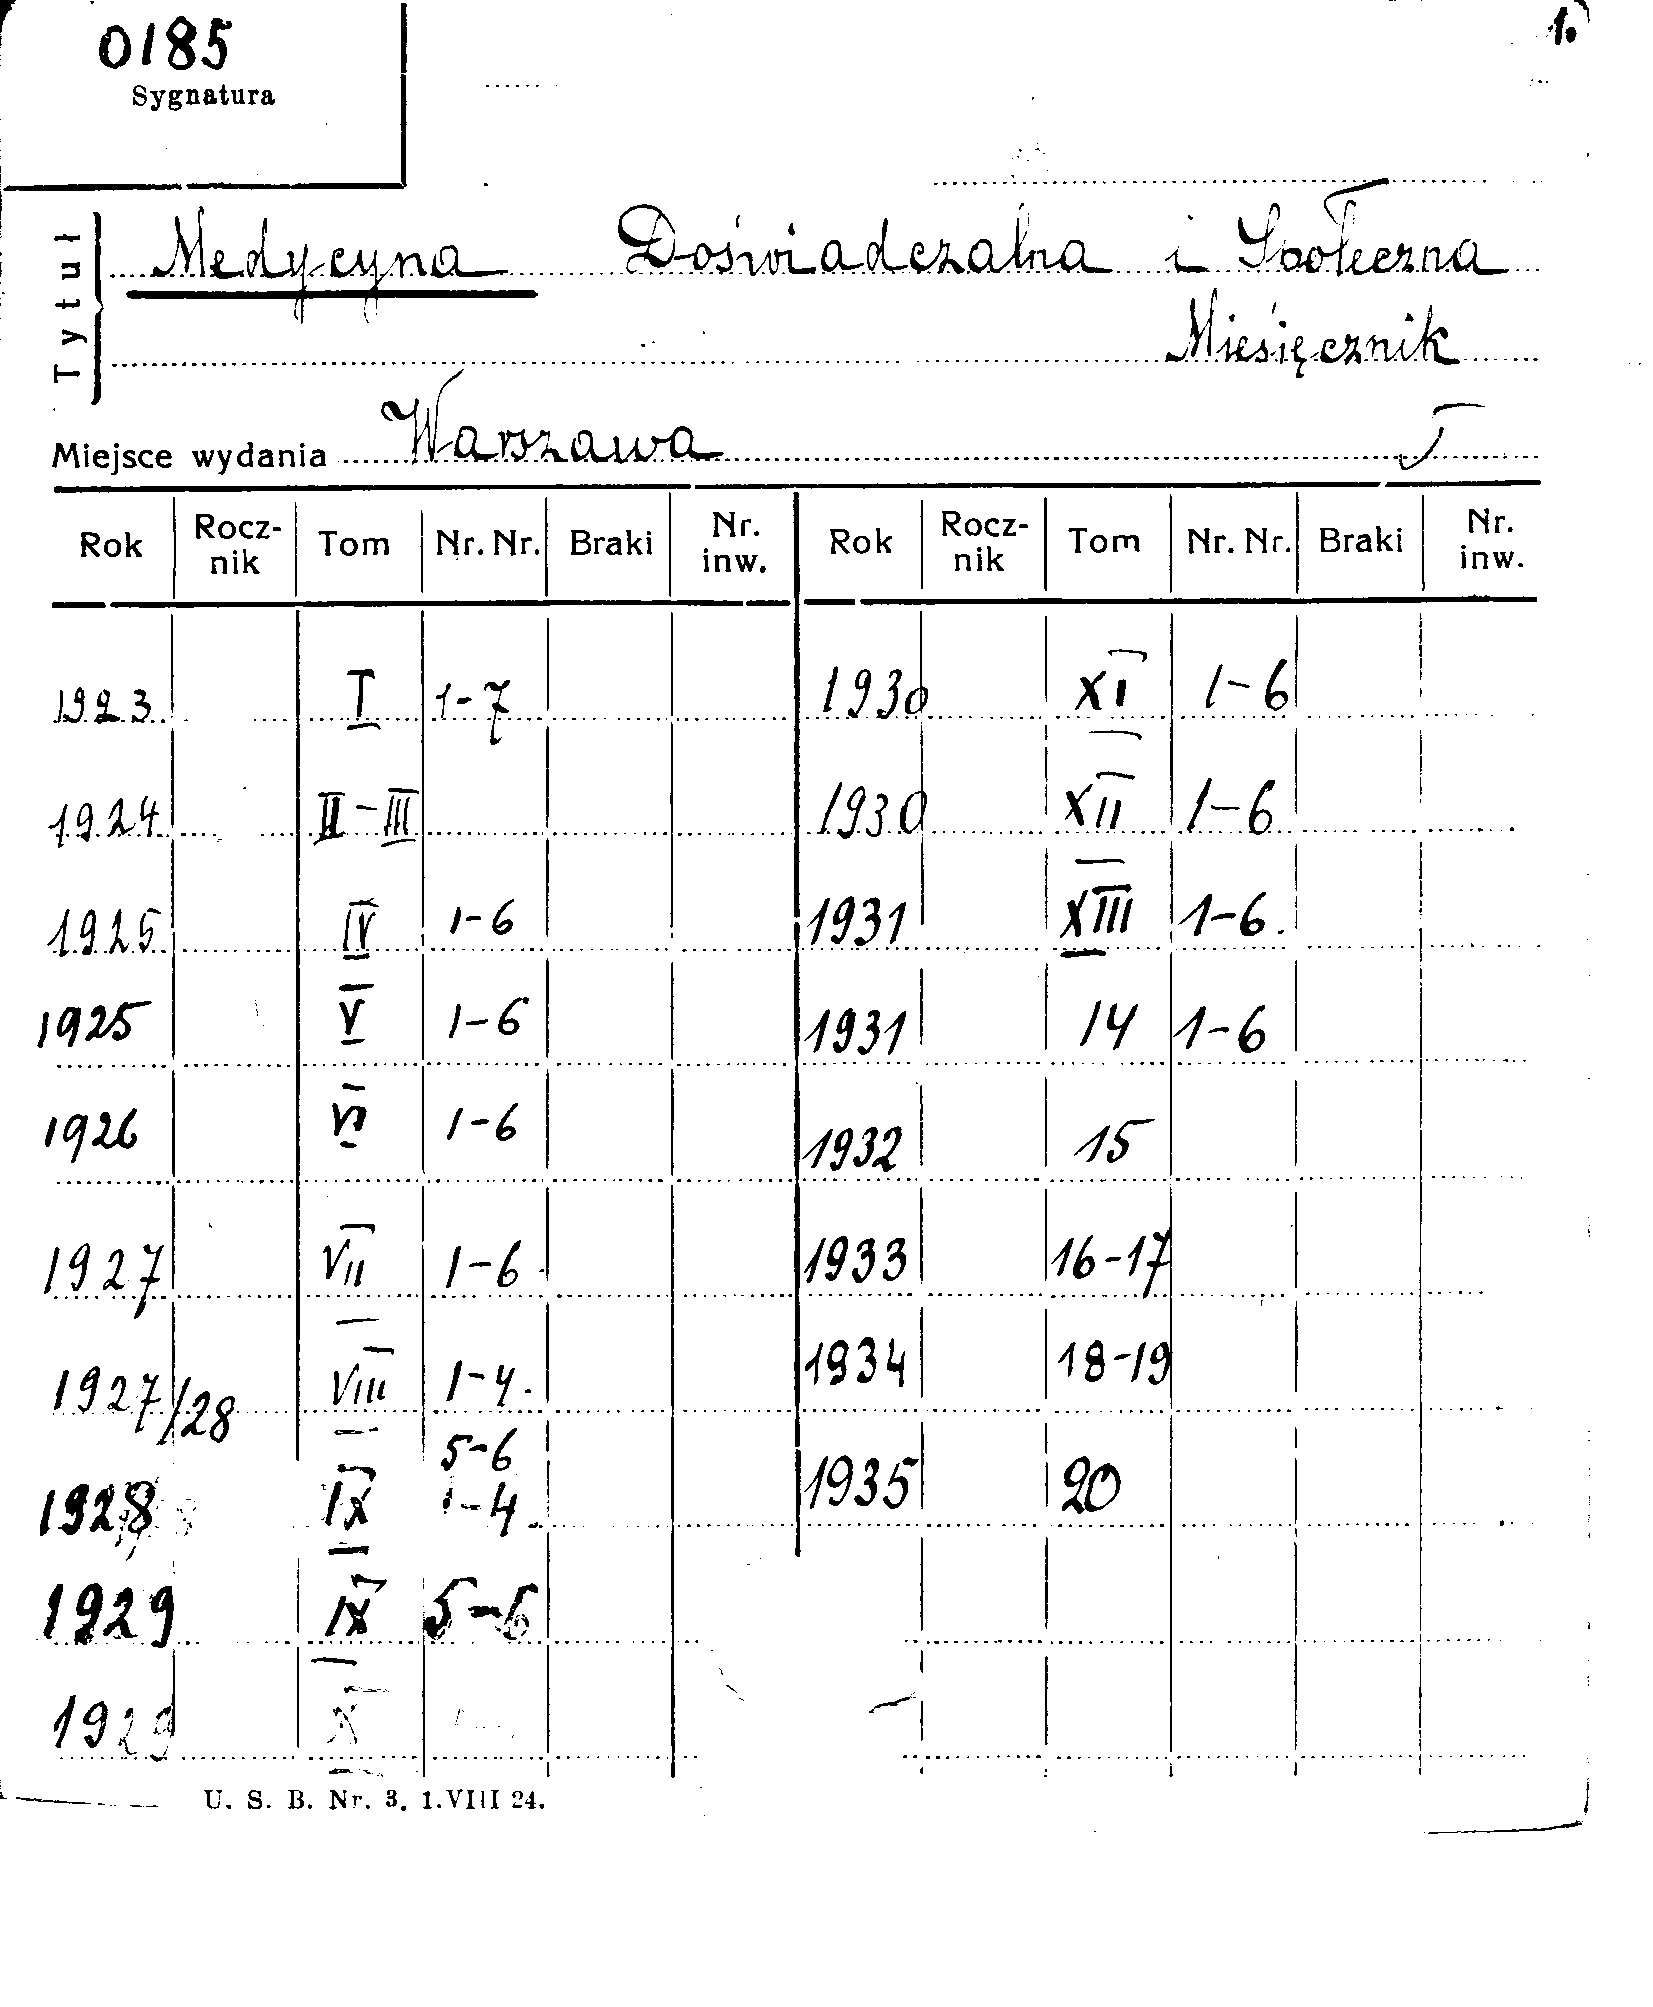 0185
1.
Sygnatura
Tytuł
Medycyna Doświadczalna i Społeczna
Miesięcznik
Miejsce wydania Warszawa
Rok Rocz-nik Tom Nr. Nr. Braki Nr. inw. Rok Rocz-nik Tom Nr. Nr. Braki Nr. inw.
1923 I 1-7 1930 XI 1-6
1924 II-III 1930 XII 1-6
1925 IV 1-6 1931 XIII 1-6.
1925 V 1-6 1931 14 1-6
1926 VI 1-6 1932 15
1927 VII 1-6. 1933 16-17
1927/28 VIII 1-4. 1934 18-19
5-6
1928 IX 1-4. 1935 20
1929 IX 5-6
1929 X
U. S. B. Nr. 3. 1.VIII 24.